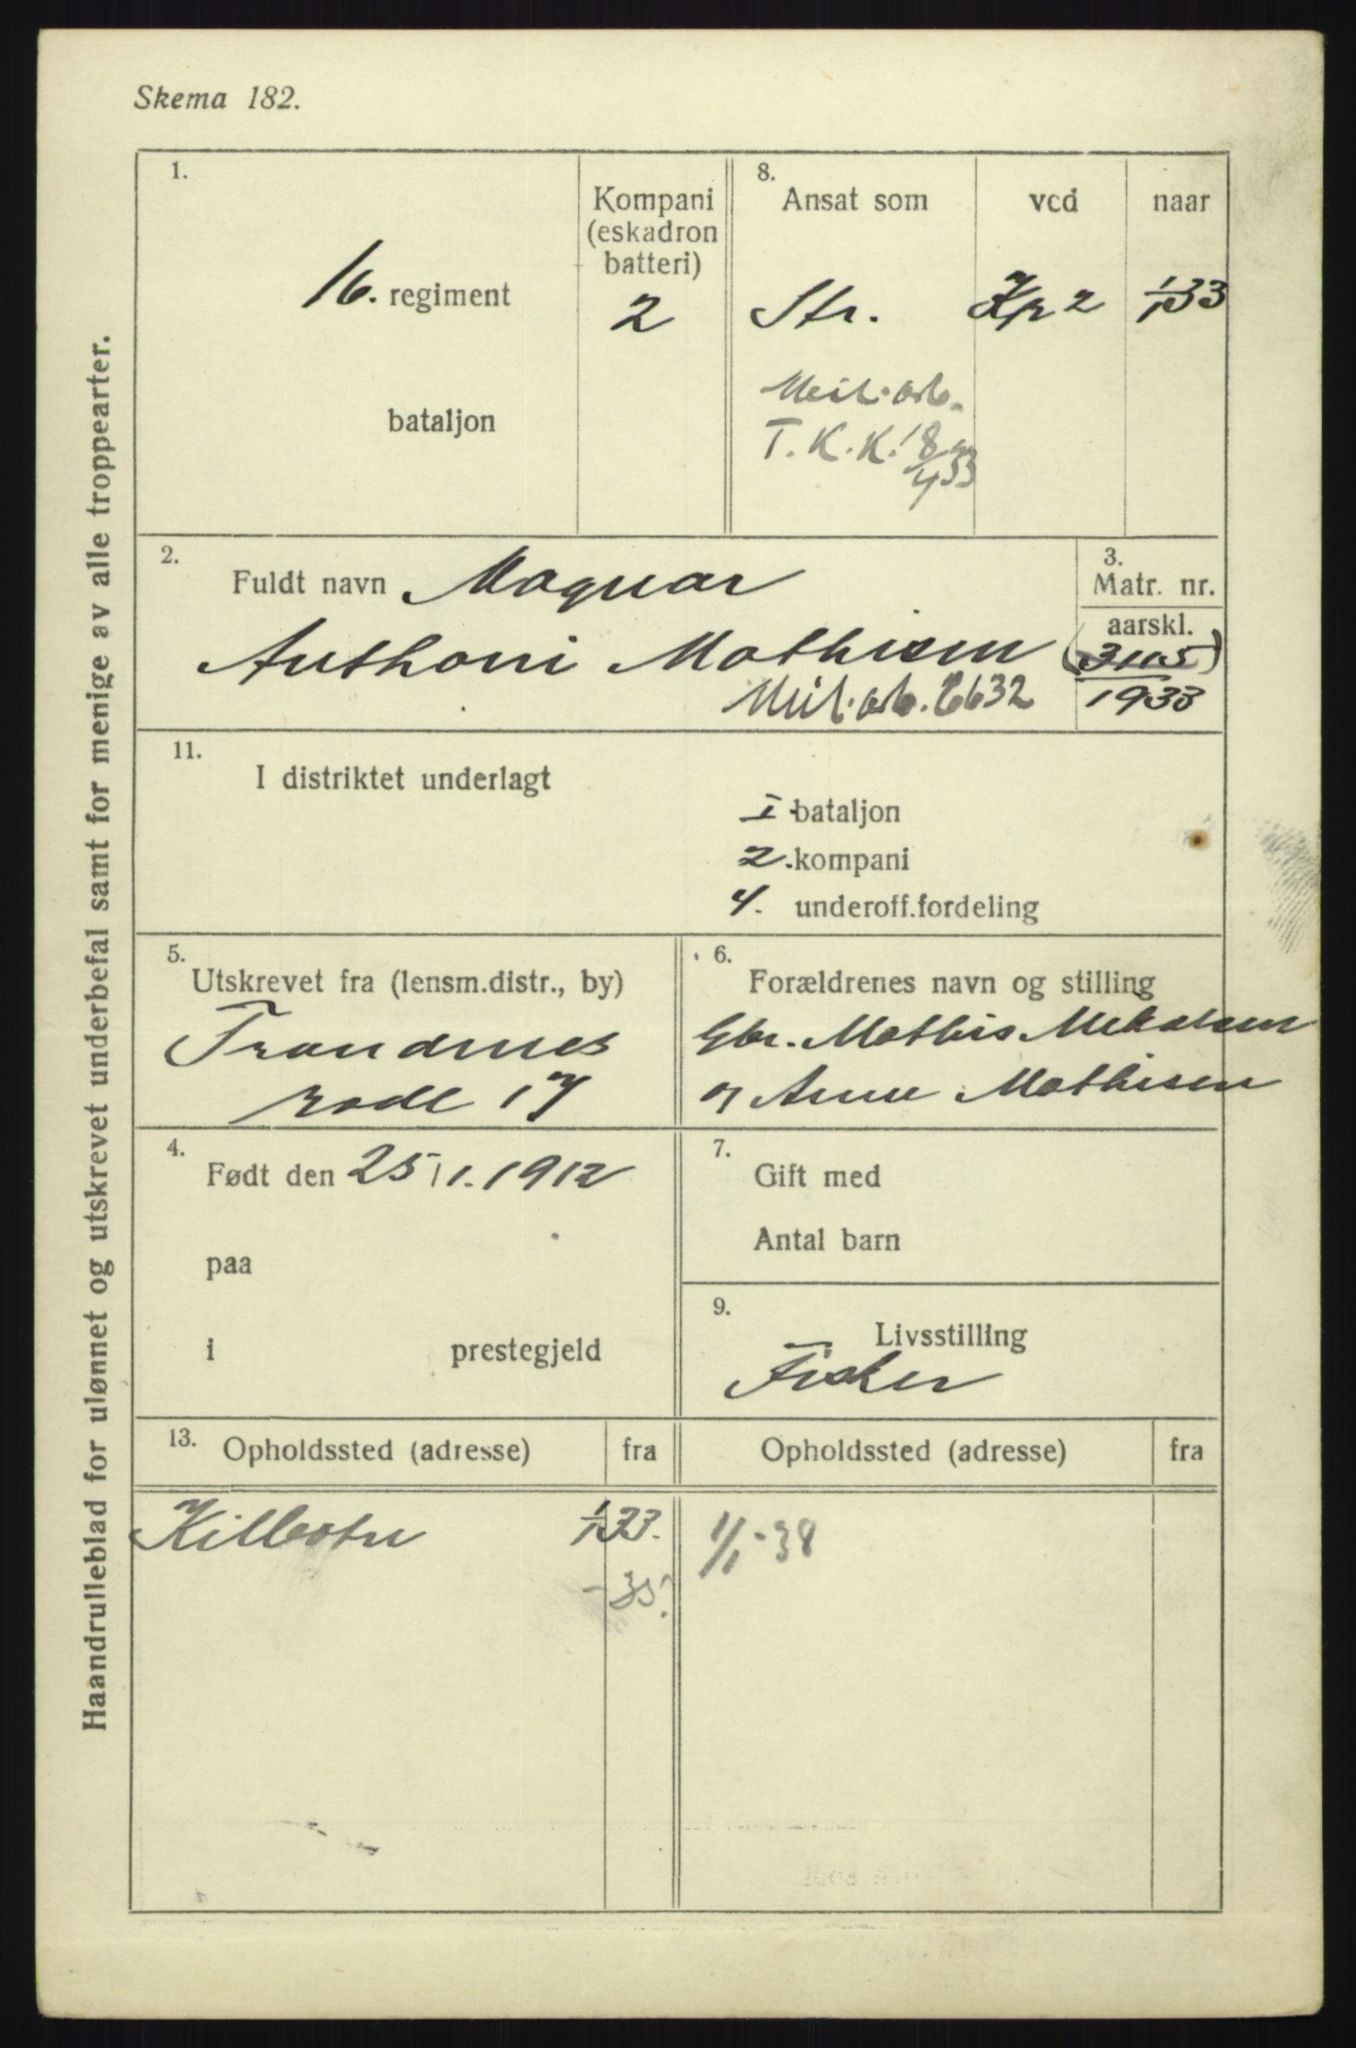 Skema 182.
Haandrulleblad for ulønnet og utskrevet underbefal samt for menige av alle troppearter.
1.
16. regiment
bataljon
Kompani
(eskadron
batteri)
2
8.
Ansat som ved naar
Str. Kp 2 1/1 33
Mil. arb.
T. K. K. 18/4 33
2.
Fuldt navn Magnar
Anthoni Mathisen
Mil. arb. 6632
3.
Matr. nr.
aarskl.
(3105)
1933
11.
I distriktet underlagt
I bataljon
2. kompani
4. underoff.fordeling
5.
Utskrevet fra (lensm.distr., by)
Trondenes
rode 17
6.
Forældrenes navn og stilling
Gbr. Mathis Mikalsen
og Anne Mathisen
4.
Født den 25/1. 1912
paa
i prestegjeld
7.
Gift med
Antal barn
9.
Livsstilling
Fisker
13.
Opholdssted (adresse) fra Opholdssted (adresse) fra
Kilbotn 1/1 33. 1/1-38
- 35.